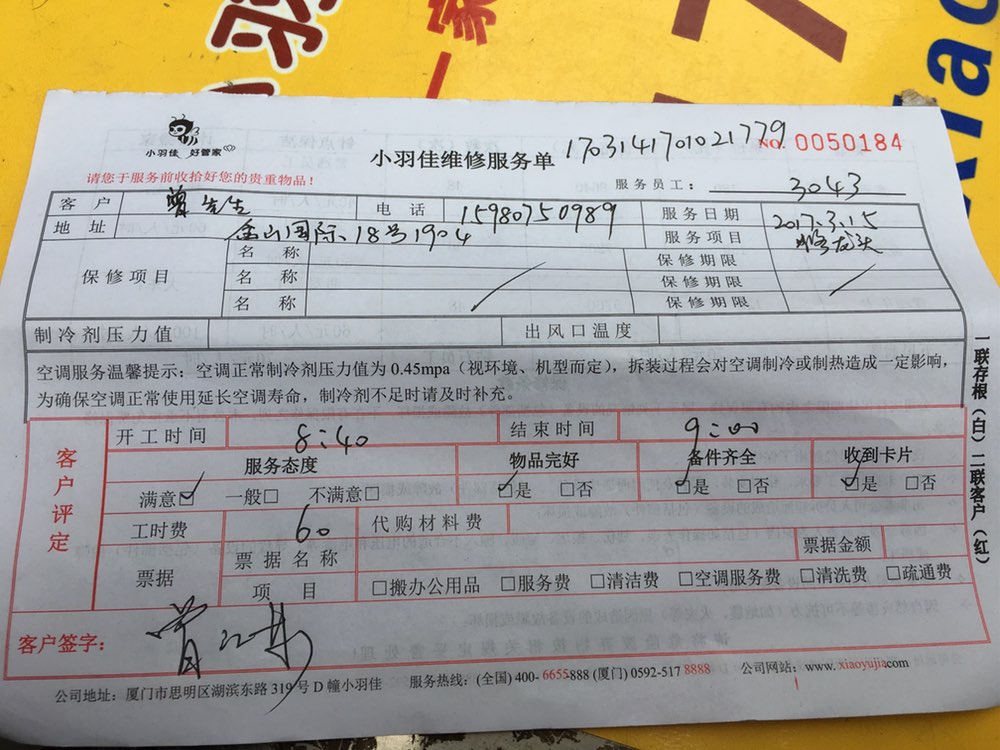 小羽佳 好管家
小羽佳维修服务单 1703141701021779 NO. 0050184
请您于服务前收拾好您的贵重物品！
服务员工： 3043
客户 曾先生 电话 15980750989 服务日期 2017.3.15
地址 金山国际、18号1904 服务项目 修龙头
保修项目 名称 保修期限
名称 保修期限
名称 保修期限
制冷剂压力值 出风口温度
空调服务温馨提示：空调正常制冷剂压力值为 0.45mpa（视环境、机型而定），拆装过程会对空调制冷或制热造成一定影响，
为确保空调正常使用延长空调寿命，制冷剂不足时请及时补充。
客户评定
开工时间 8:40 结束时间 9:00
服务态度 物品完好 备件齐全 收到卡片
满意☑ 一般□ 不满意□ ☑是 □否 ☑是 □否 ☑是 □否
工时费 60 代购材料费
票据 票据名称 票据金额
项目 □搬办公用品 □服务费 □清洁费 □空调服务费 □清洗费 □疏通费
客户签字：
公司地址：厦门市思明区湖滨东路 319 号 D 幢小羽佳 服务热线：(全国) 400- 6655-888 (厦门) 0592-517 8888 公司网站：www. xiaoyujia.com
一联存根（白）二联客户（红）